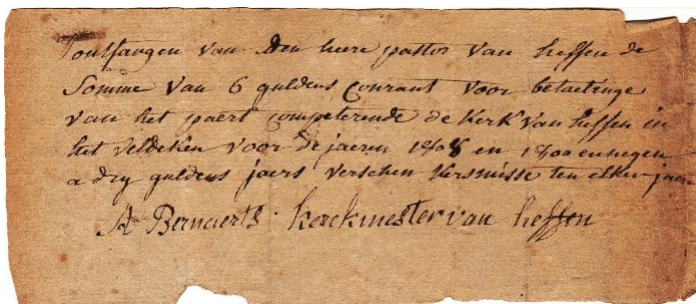 ontfangen van den heere pastor van heffen de
Somme van 6 guldens Courant voor betaelinge
van het paert competerende de Kerk van heffen in
het veldeken voor de jaeren 1808 en 1800 en negen
a dry guldens jaers verschen kersmisse ten elken jaere
A Bernaerts kerckmester van heffen